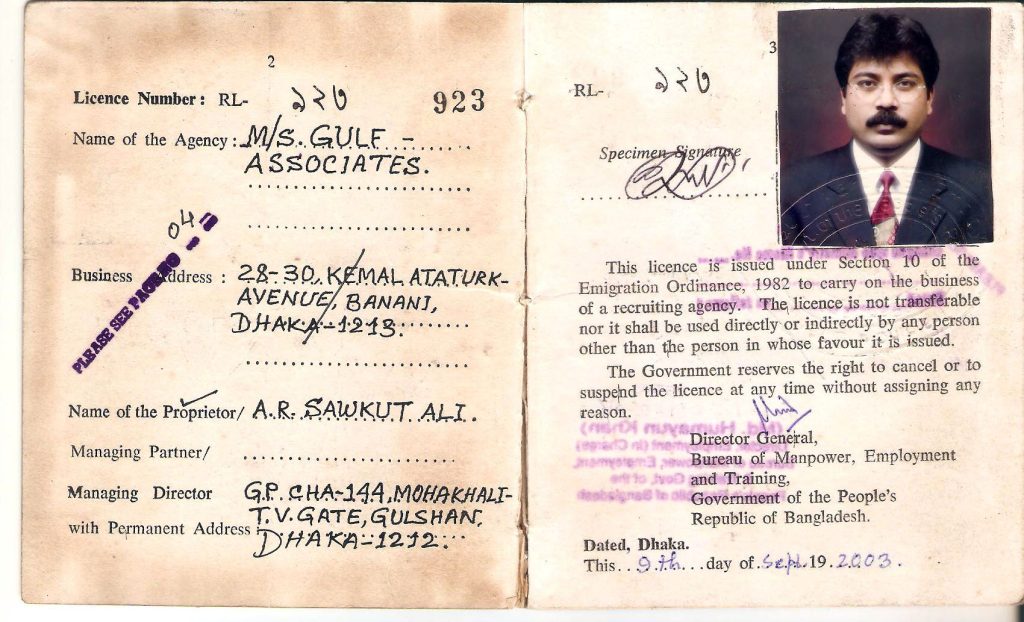 2
Licence Number: RL- ১২৩ 923
Name of the Agency: M/S. GULF -
ASSOCIATES.
04
PLEASE SEE PAGE NO
Business Address : 28-30, KEMAL ATATURK-
AVENUE, BANANI,
DHAKA-1213.
Name of the Proprietor/ A.R. SAWKUT ALI.
Managing Partner/
Managing Director G.P. CHA-144, MOHAKHALI-
with Permanent Address : T.V. GATE, GULSHAN,
DHAKA-1212.
3
RL- ১২৩
Specimen Signature
This licence is issued under Section 10 of the
Emigration Ordinance, 1982 to carry on the business
of a recruiting agency. The licence is not transferable
nor it shall be used directly or indirectly by any person
other than the person in whose favour it is issued.
The Government reserves the right to cancel or to
suspend the licence at any time without assigning any
reason.
Director General,
Bureau of Manpower, Employment
and Training,
Government of the People's
Republic of Bangladesh.
Dated, Dhaka.
This 9th day of Sept. 19 2003.